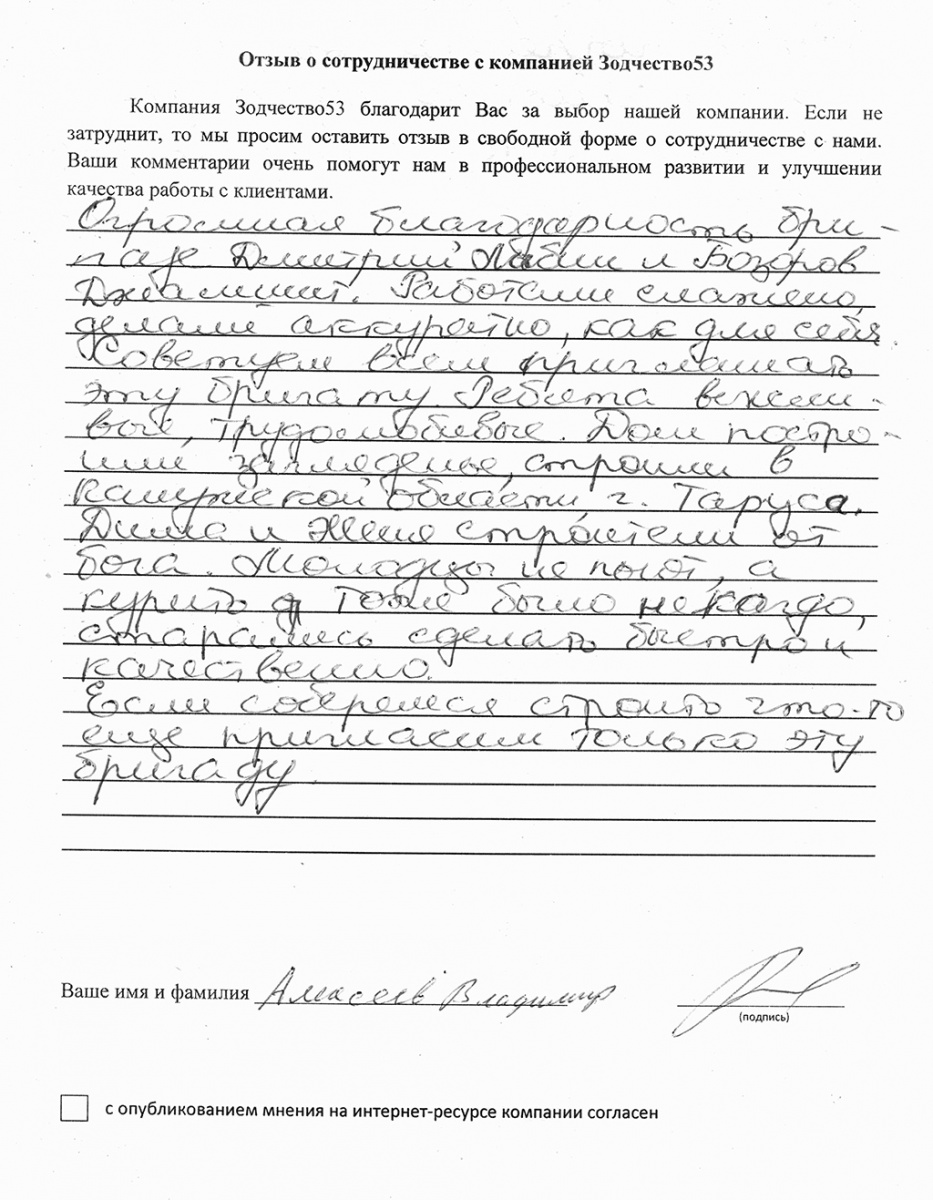 Отзыв о сотрудничестве с компанией Зодчество53
Компания Зодчество53 благодарит Вас за выбор нашей компании. Если не
затруднит, то мы просим оставить отзыв в свободной форме о сотрудничестве с нами.
Ваши комментарии очень помогут нам в профессиональном развитии и улучшении
качества работы с клиентами.
Огромная благодарность бри-
гаде Дмитрий Лабин и Бозоров
Работали слажено,
делали аккуратно, как для себя.
Советуем всем приглашать
эту бригату. Ребята вежли-
вые, трудолюбивые. Дом постро-
или загляденье, строили в
Калужской области, г. Таруса.
Дима и Женя строители от
бога. Молодцы не пьют, а
курить тоже было некагдо,
старались сделать быстро и
качественно.
Если соберемся строить что-то
еще пригласим только эту
бригаду.
Ваше имя и фамилия Алексеев Владимир
(подпись)
с опубликованием мнения на интернет-ресурсе компании согласен